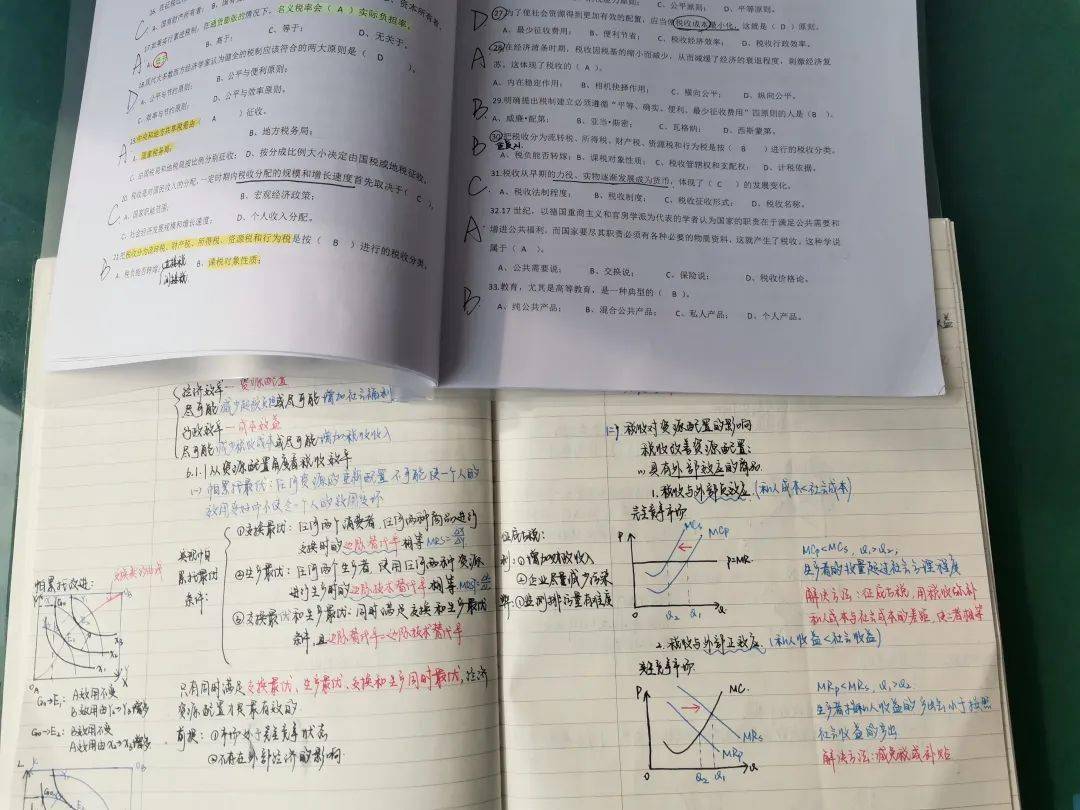 名义税率会（ A ）实际负担率。
B、高于；
C、等于；
D、无关于。
18.现代大多数西方经济学家认为健全的税制应该符合的两大原则是（ D ）。
A、公平与节约原则；
B、公平与便利原则；
C、效率与节约原则；
D、公平与效率原则。
A
）征收。
A、国家税务局；
B、地方税务局；
C、由国税局和地税局按比例分别征收；
D、按分成比例大小决定由国税或地税征收。
20.税收是对国民收入的分配，一定时期内税收分配的规模和增长速度首先取决于（ C ）。
A、国家职能范围；
B、宏观经济政策；
C、社会经济发展规模和增长速度；
D、个人收入分配。
21.把税收分为流转税、财产税、所得税、资源税和行为税是按（ B ）进行的税收分类。
A、税负能否转嫁；
B、课税对象性质；
直接税
间接税
C、公平原则；
D、平等原则。
27.为了使社会资源得到更加有效的配置，应当使税收成本最小化，这就是（ D ）原则。
A、最少征收费用；
B、便利节省；
C、税收经济效率；
D、税收行政效率。
28.在经济萧条时期，税收因税基的缩小而减少，从而减缓了经济的衰退程度，刺激经济复
苏。这体现了税收的（ A ）。
A、内在稳定作用；
B、相机抉择作用；
C、横向公平；
D、纵向公平。
29.明确提出税制建立必须遵循“平等、确实、便利、最少征收费用”四原则的人是（B ）。
A、威廉·配第；
B、亚当·斯密；
C、瓦格纳；
D、西斯蒙第。
30.把税收分为流转税、所得税、财产税、资源税和行为税是按（ B ）进行的税收分类。
A、税负能否转嫁；
B、课税对象性质；
C、税收管辖权和支配权；
D、计税依据。
31.税收从早期的力役、实物逐渐发展成为货币，体现了（ C ）的发展变化。
A、税收法制程度；
B、税收制度；
C、税收征收形式；
D、税收名称。
32.17 世纪，以德国重商主义和官房学派为代表的学者认为国家的职责在于满足公共需要和
增进公共福利，而国家要尽其职责必须有各种必要的物质资料，这就产生了税收。这种学说
属于（ A ）。
A、公共需要说；
B、交换说；
C、保险说；
D、税收价格论。
33.教育，尤其是高等教育，是一种典型的（ B ）。
A、纯公共产品；
B、混合公共产品；
C、私人产品；
D、个人产品。
经济效率—资源配置
尽可能减少超额负担或尽可能增加社会福利
行政效率—成本效益
尽可能减少税收成本或尽可能增加税收收入
6.1.1 从资源配置角度看税收效率
(一) 帕累托最优：任何资源的重新配置不可能使一个人的
效用变好而不使另一个人的效用变坏
实现帕
累托最优
条件：
①交换最优：任何两个消费者，任何两种商品进行
交换时的边际替代率相等
②生产最优：任何两个生产者，使用任何两种资源
进行生产时的边际技术替代率相等
③交换最优和生产最优：同时满足交换和生产最优
条件，且边际替代率=边际技术替代率
帕累托改进：
G₀→E₁：A效用不变
G₀→E₂：B效用不变
只有同时满足交换最优、生产最优、交换和生产同时最优，经济
资源配置才是最有效的
前提：①市场处于完全竞争状态
②不存在外部经济的影响
(二) 税收对资源配置的影响
税收改善资源配置：
(1) 具有外部效应的商品
1. 税收与外部负效应（私人成本<社会成本）
完全竞争市场
征庇古税：
利：①增加财政收入
②企业尽量减少污染
弊：①监测排污量有难度
P
MCs
MCp
P=MR
O
Q₂ Q₁
MCp<MCs，Q₁>Q₂，
解决方法：征庇古税，用税收弥补
私人成本与社会成本的差距，使二者相等
2. 税收与外部正效应（私人收益<社会收益）
完全竞争市场
P
MC
MRs
MRp
O
Q₂ Q₁
MRp<MRs，Q₁>Q₂
社会收益的产出
解决方法：减免税或补贴